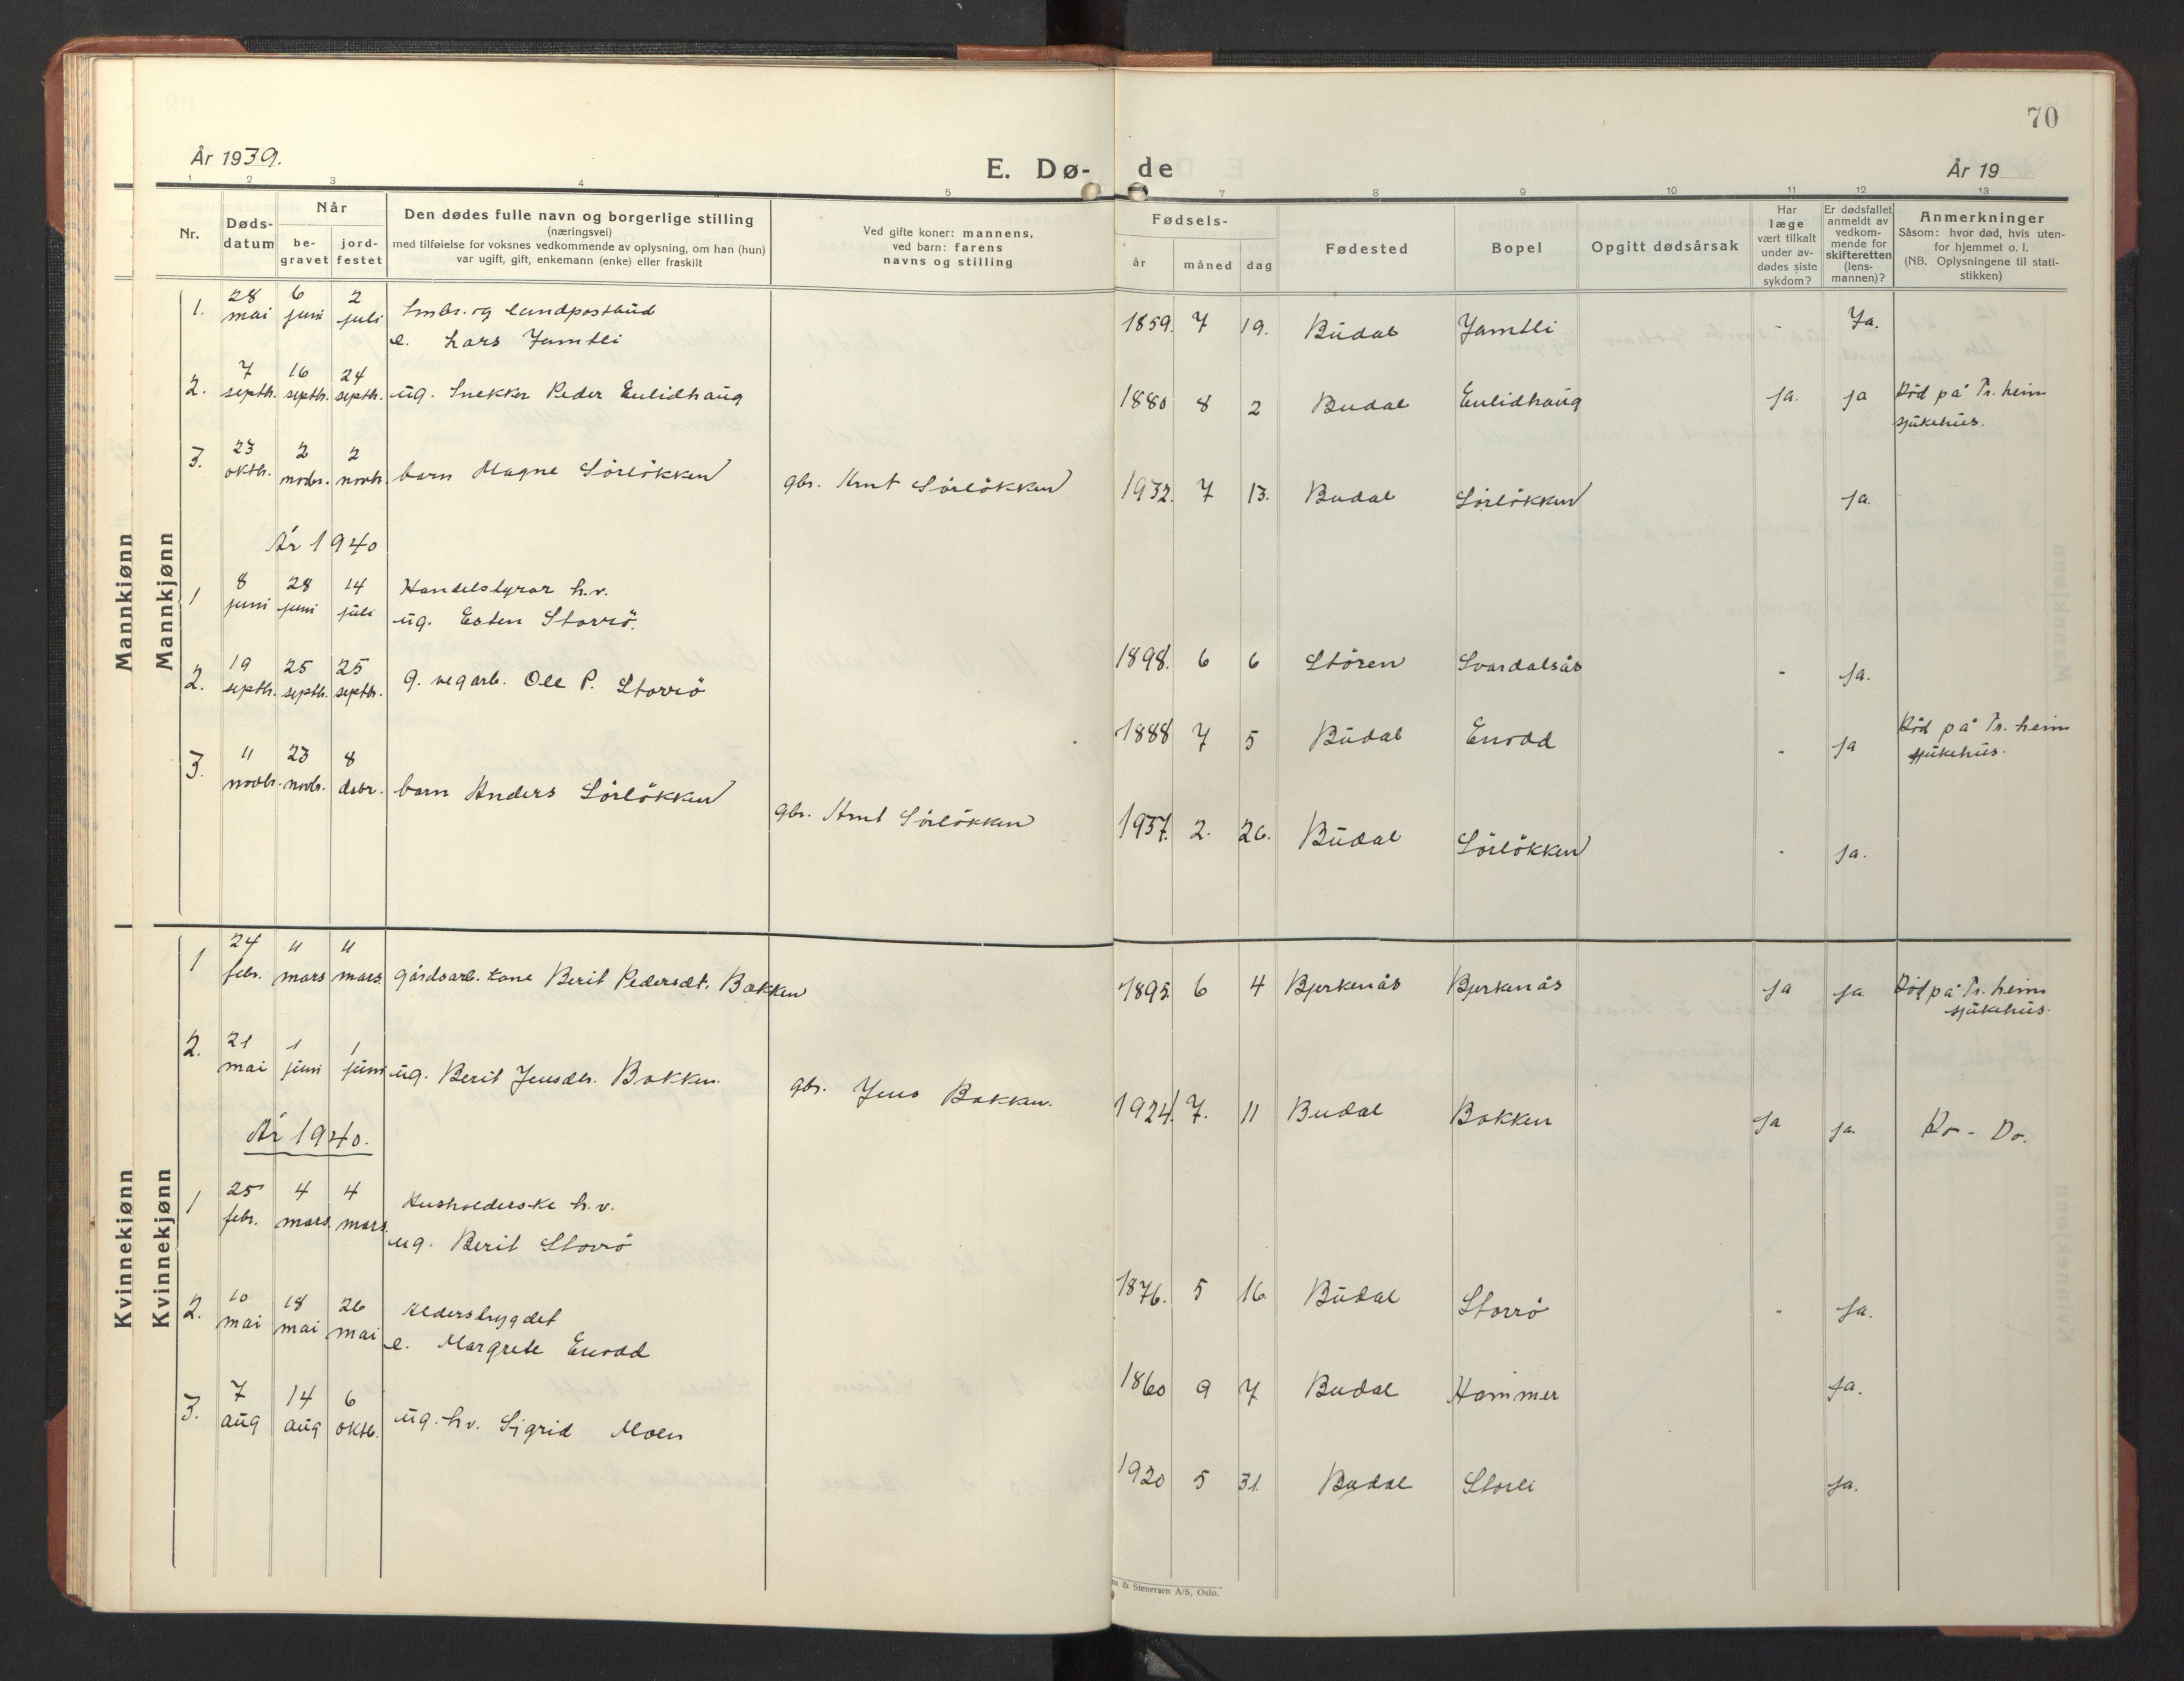 70
År 1939.
E. Dø- de
År 19
1 2 3 4 5 7 8 9 10 11 12 13
Nr.
Døds-
datum
Når
be-
gravet
jord-
festet
Den dødes fulle navn og borgerlige stilling
(næringsvei)
med tilføielse for voksnes vedkommende av oplysning, om han (hun)
var ugift, gift, enkemann (enke) eller fraskilt
Ved gifte koner: mannens,
ved barn: farens
navns og stilling
Fødsels-
år måned dag
Fødested
Bopel
Opgitt dødsårsak
Har
læge
vært tilkalt
under av-
dødes siste
sykdom?
Er dødsfallet
anmeldt av
vedkom-
mende for
skifteretten
(lens-
mannen)?
Anmerkninger
Såsom: hvor død, hvis uten-
for hjemmet o. l.
(NB. Oplysningene til stati-
stikken)
Mannkjønn
Mannkjønn
1. 28 mai 6 juni 2 juli Smbr. og landpostbud
e. Lars Jamtli
1859. 7 19. Budal Jamtli - Ja.
2. 7 septb. 16 septb. 24 septb. ug. Snekker Peder Enlidhaug
1880 8 2 Budal Enlidhaug ja. ja Död på Tr.heim
sjukehus.
3. 23 oktb. 2 novbr. 2 novb. barn Magne Sörlökken gbr. Arnt Sörlökken
1932. 7 13. Budal Sörlökken ja.
År 1940
1 8 juni 28 juni 14 juli Handelstyrar h.v.
ug. Esten Storrö.
1898. 6 6 Stören Svardalsås - ja.
2. 19 septb. 25 septb. 25 septb. g. vegarb. Ole P. Storrö
1888 7 5 Budal Enodd - ja Död på Tr.heim
sjukehus.
3. 11 novb. 23 novb. 8 desbr. barn Anders Sörlökken gbr. Arnt Sörlökken
1937. 2. 26. Budal Sörlökken - ja.
Kvinnekjønn
Kvinnekjønn
1 24 febr. 11 mars 11 mars. gårdsarb. kone Berit Pedersdt. Bakken
1895. 6 4 Bjerkenås Bjerkenås ja ja Död på Tr.heim
sjukehus.
2. 21 mai 1 juni 1 juni ug. Berit Jensdtr. Bakken. gbr. Jens Bakken.
1924. 7. 11 Budal Bakken ja ja. Do - Do.
År 1940.
1 25 febr. 4 mars. 4 mars. Husholderske h.v.
ug. Berit Storrö
1876. 5 16 Budal Storrö - ja.
2. 10 mai 18 mai 26 mai Alderstrygdet
e. Margrete Enodd
1860 9 7 Budal Hammer ja.
3. 7 aug 14 aug 6 oktb. ug. h.v. Sigrid Moen
1920 5 31. Budal Storli ja.
& Stenersen A/S, Oslo.